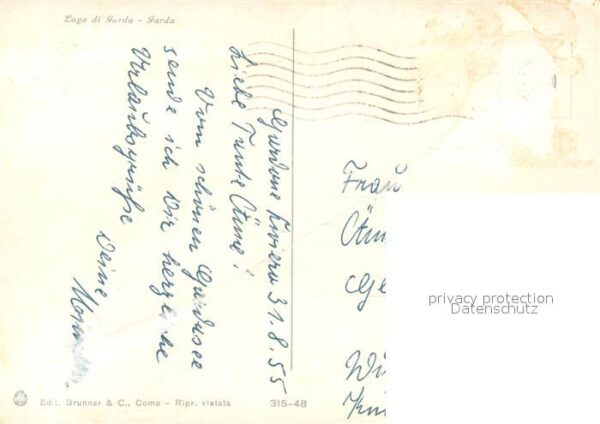 Lago di Garda - Garda
Gardone Riviera 31.8.55
Liebe Tante Änne!
Vom schönen Gardasee
sende ich Dir herzliche
Urlaubsgrüße
Deine
Frau
Änn
Ge
Wi
privacy protection
Datenschutz
Ediz. Brunner & C., Como - Ripr. vietata
315-48